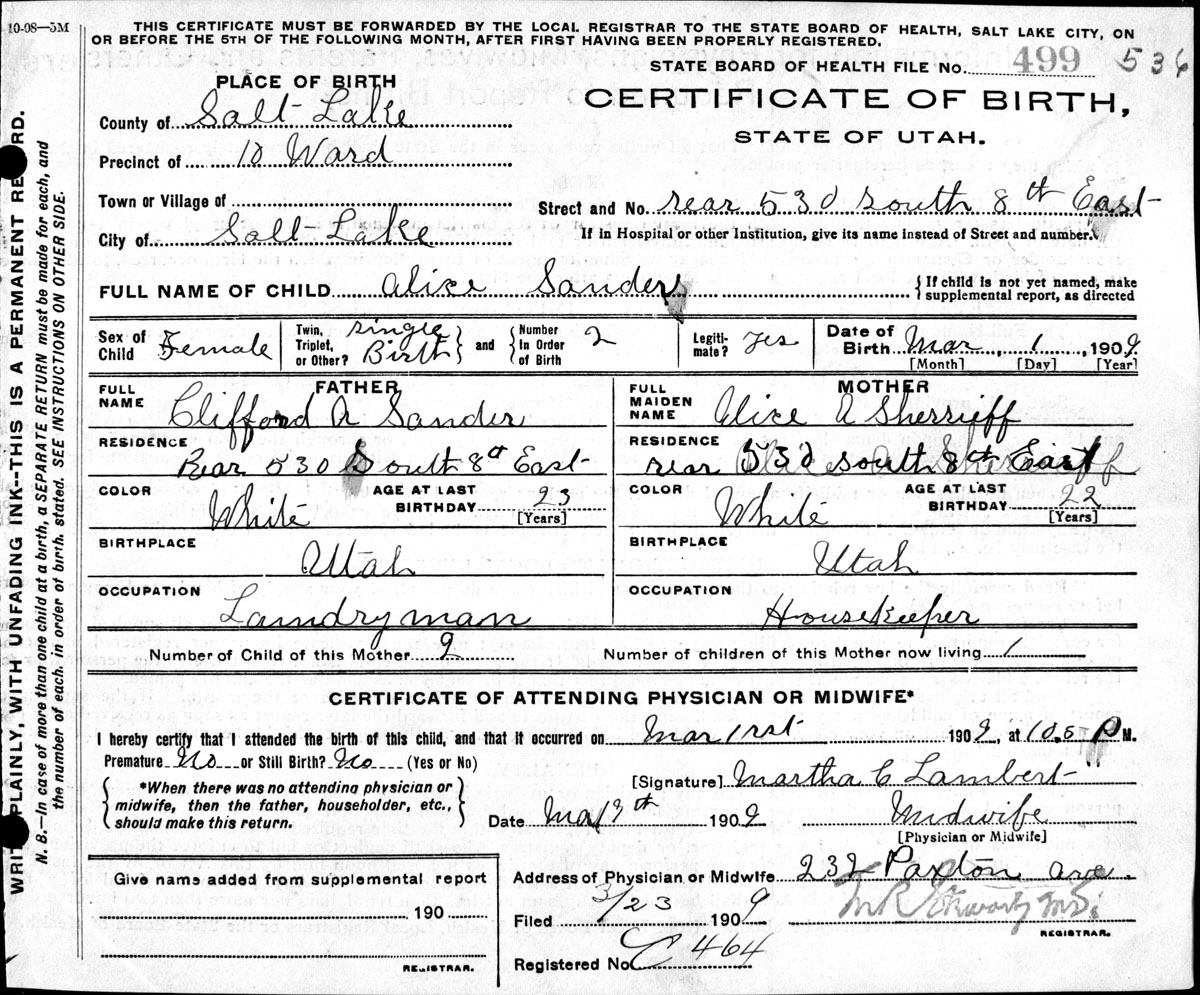 10-08—5M
THIS CERTIFICATE MUST BE FORWARDED BY THE LOCAL REGISTRAR TO THE STATE BOARD OF HEALTH, SALT LAKE CITY, ON
OR BEFORE THE 5TH OF THE FOLLOWING MONTH, AFTER FIRST HAVING BEEN PROPERLY REGISTERED.
STATE BOARD OF HEALTH FILE No. 499 536
PLACE OF BIRTH
CERTIFICATE OF BIRTH,
STATE OF UTAH.
County of Salt Lake
Precinct of 10 Ward
Town or Village of
Street and No. rear 530 South 8th East
City of Salt Lake
If in Hospital or other Institution, give its name instead of Street and number.
FULL NAME OF CHILD Alice Sanders
If child is not yet named, make supplemental report, as directed
Sex of Child Female
Twin, Triplet, or Other? Single Birth and Number In Order of Birth 2
Legitimate? Yes
Date of Birth Mar, 1, 1909
[Month] [Day] [Year]
FATHER
FULL NAME Clifford A Sander
RESIDENCE Rear 530 South 8th East
COLOR White
AGE AT LAST BIRTHDAY 23 [Years]
BIRTHPLACE Utah
OCCUPATION Laundryman
MOTHER
FULL MAIDEN NAME Alice A Sherrieff
RESIDENCE rear 530 South 8th East
COLOR White
AGE AT LAST BIRTHDAY 22 [Years]
BIRTHPLACE Utah
OCCUPATION Housekeeper
Number of Child of this Mother 2
Number of children of this Mother now living 1
CERTIFICATE OF ATTENDING PHYSICIAN OR MIDWIFE*
I hereby certify that I attended the birth of this child, and that it occurred on Mar 1rst 1909, at 10.5 P M.
Premature No or Still Birth? No (Yes or No)
*When there was no attending physician or
midwife, then the father, householder, etc.,
should make this return.
[Signature] Martha C Lambert
Date 9th 1909
Midwife
[Physician or Midwife]
Give name added from supplemental report
190
REGISTRAR.
Address of Physician or Midwife 232 Paxton ave.
Filed 3/23 1909
REGISTRAR.
Registered No. C 464
WRITE PLAINLY, WITH UNFADING INK—THIS IS A PERMANENT RECORD.
N. B.—In case of more than one child at a birth, a SEPARATE RETURN must be made for each, and
the number of each, in order of birth, stated. SEE INSTRUCTIONS ON OTHER SIDE.